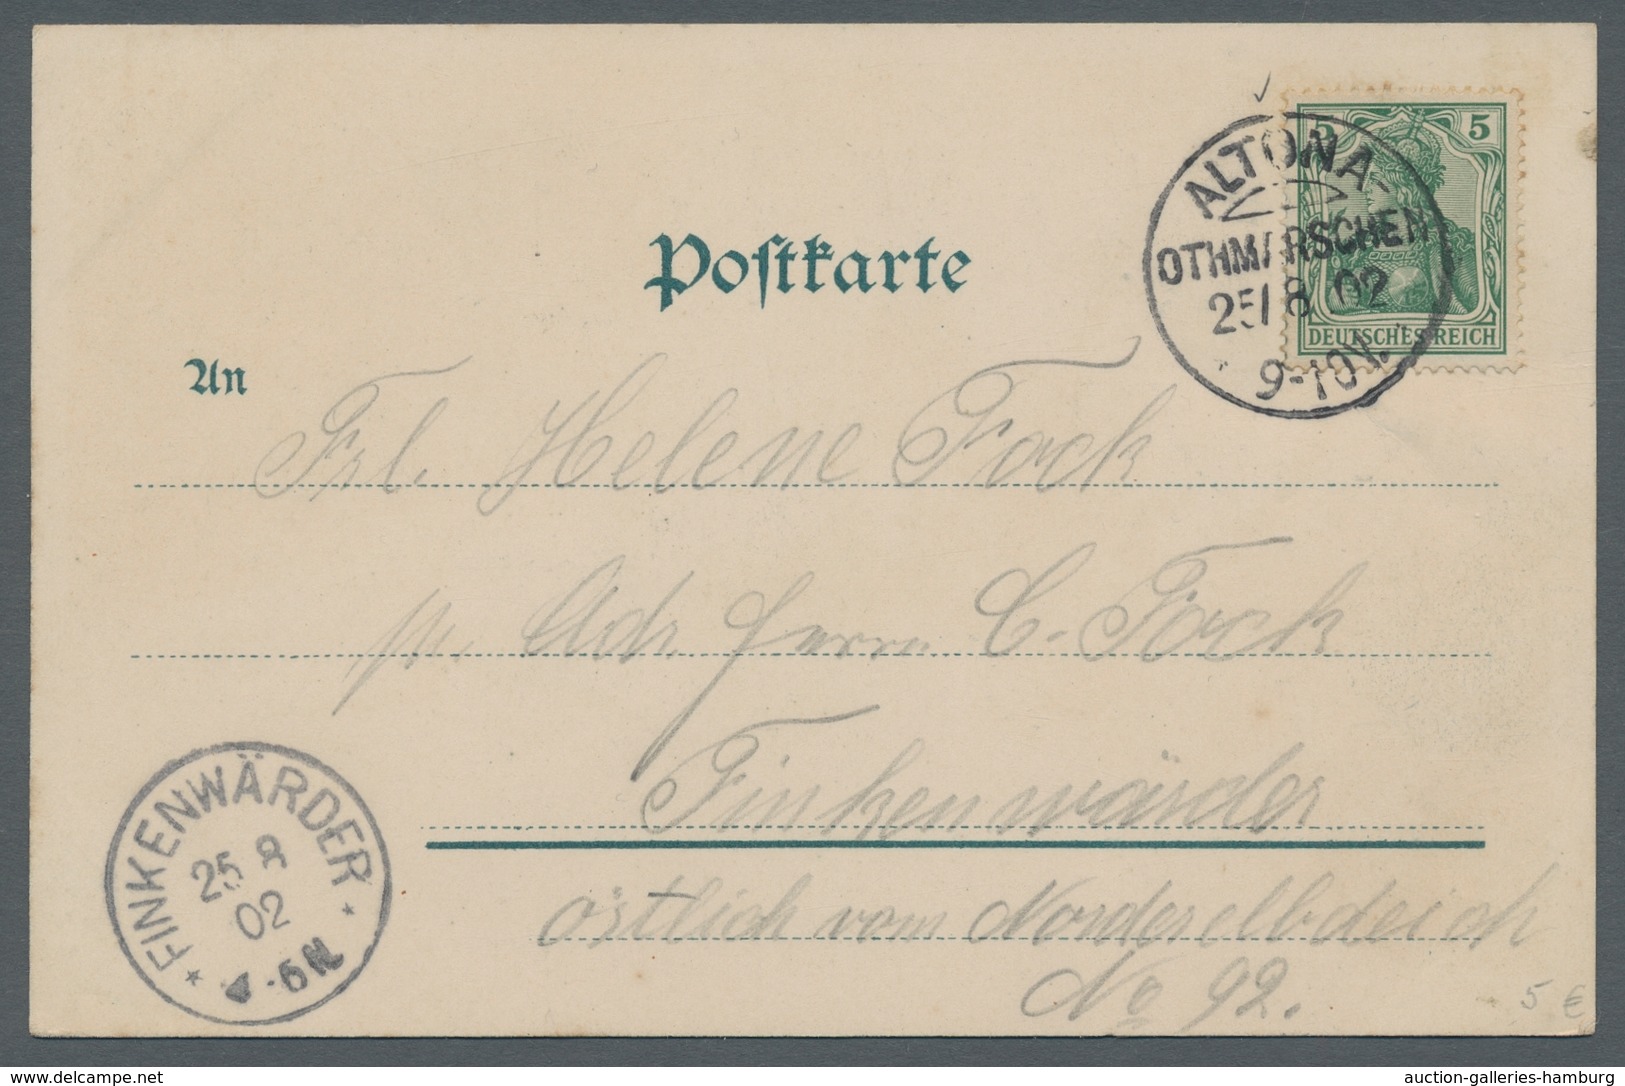 5 5
ALTONA-
OTHMARSCHEN
25/8.02
9-10V.
DEUTSCHES REICH
Postkarte
An
Frl. Helene Fock
p. Adr. Herrn C. Fock
Finkenwärder
östlich vom Norderelbdeich
No 92.
FINKENWÄRDER
25 8
02
4-5N
5 €
www.delcampe.net
auction-galleries-hamburg